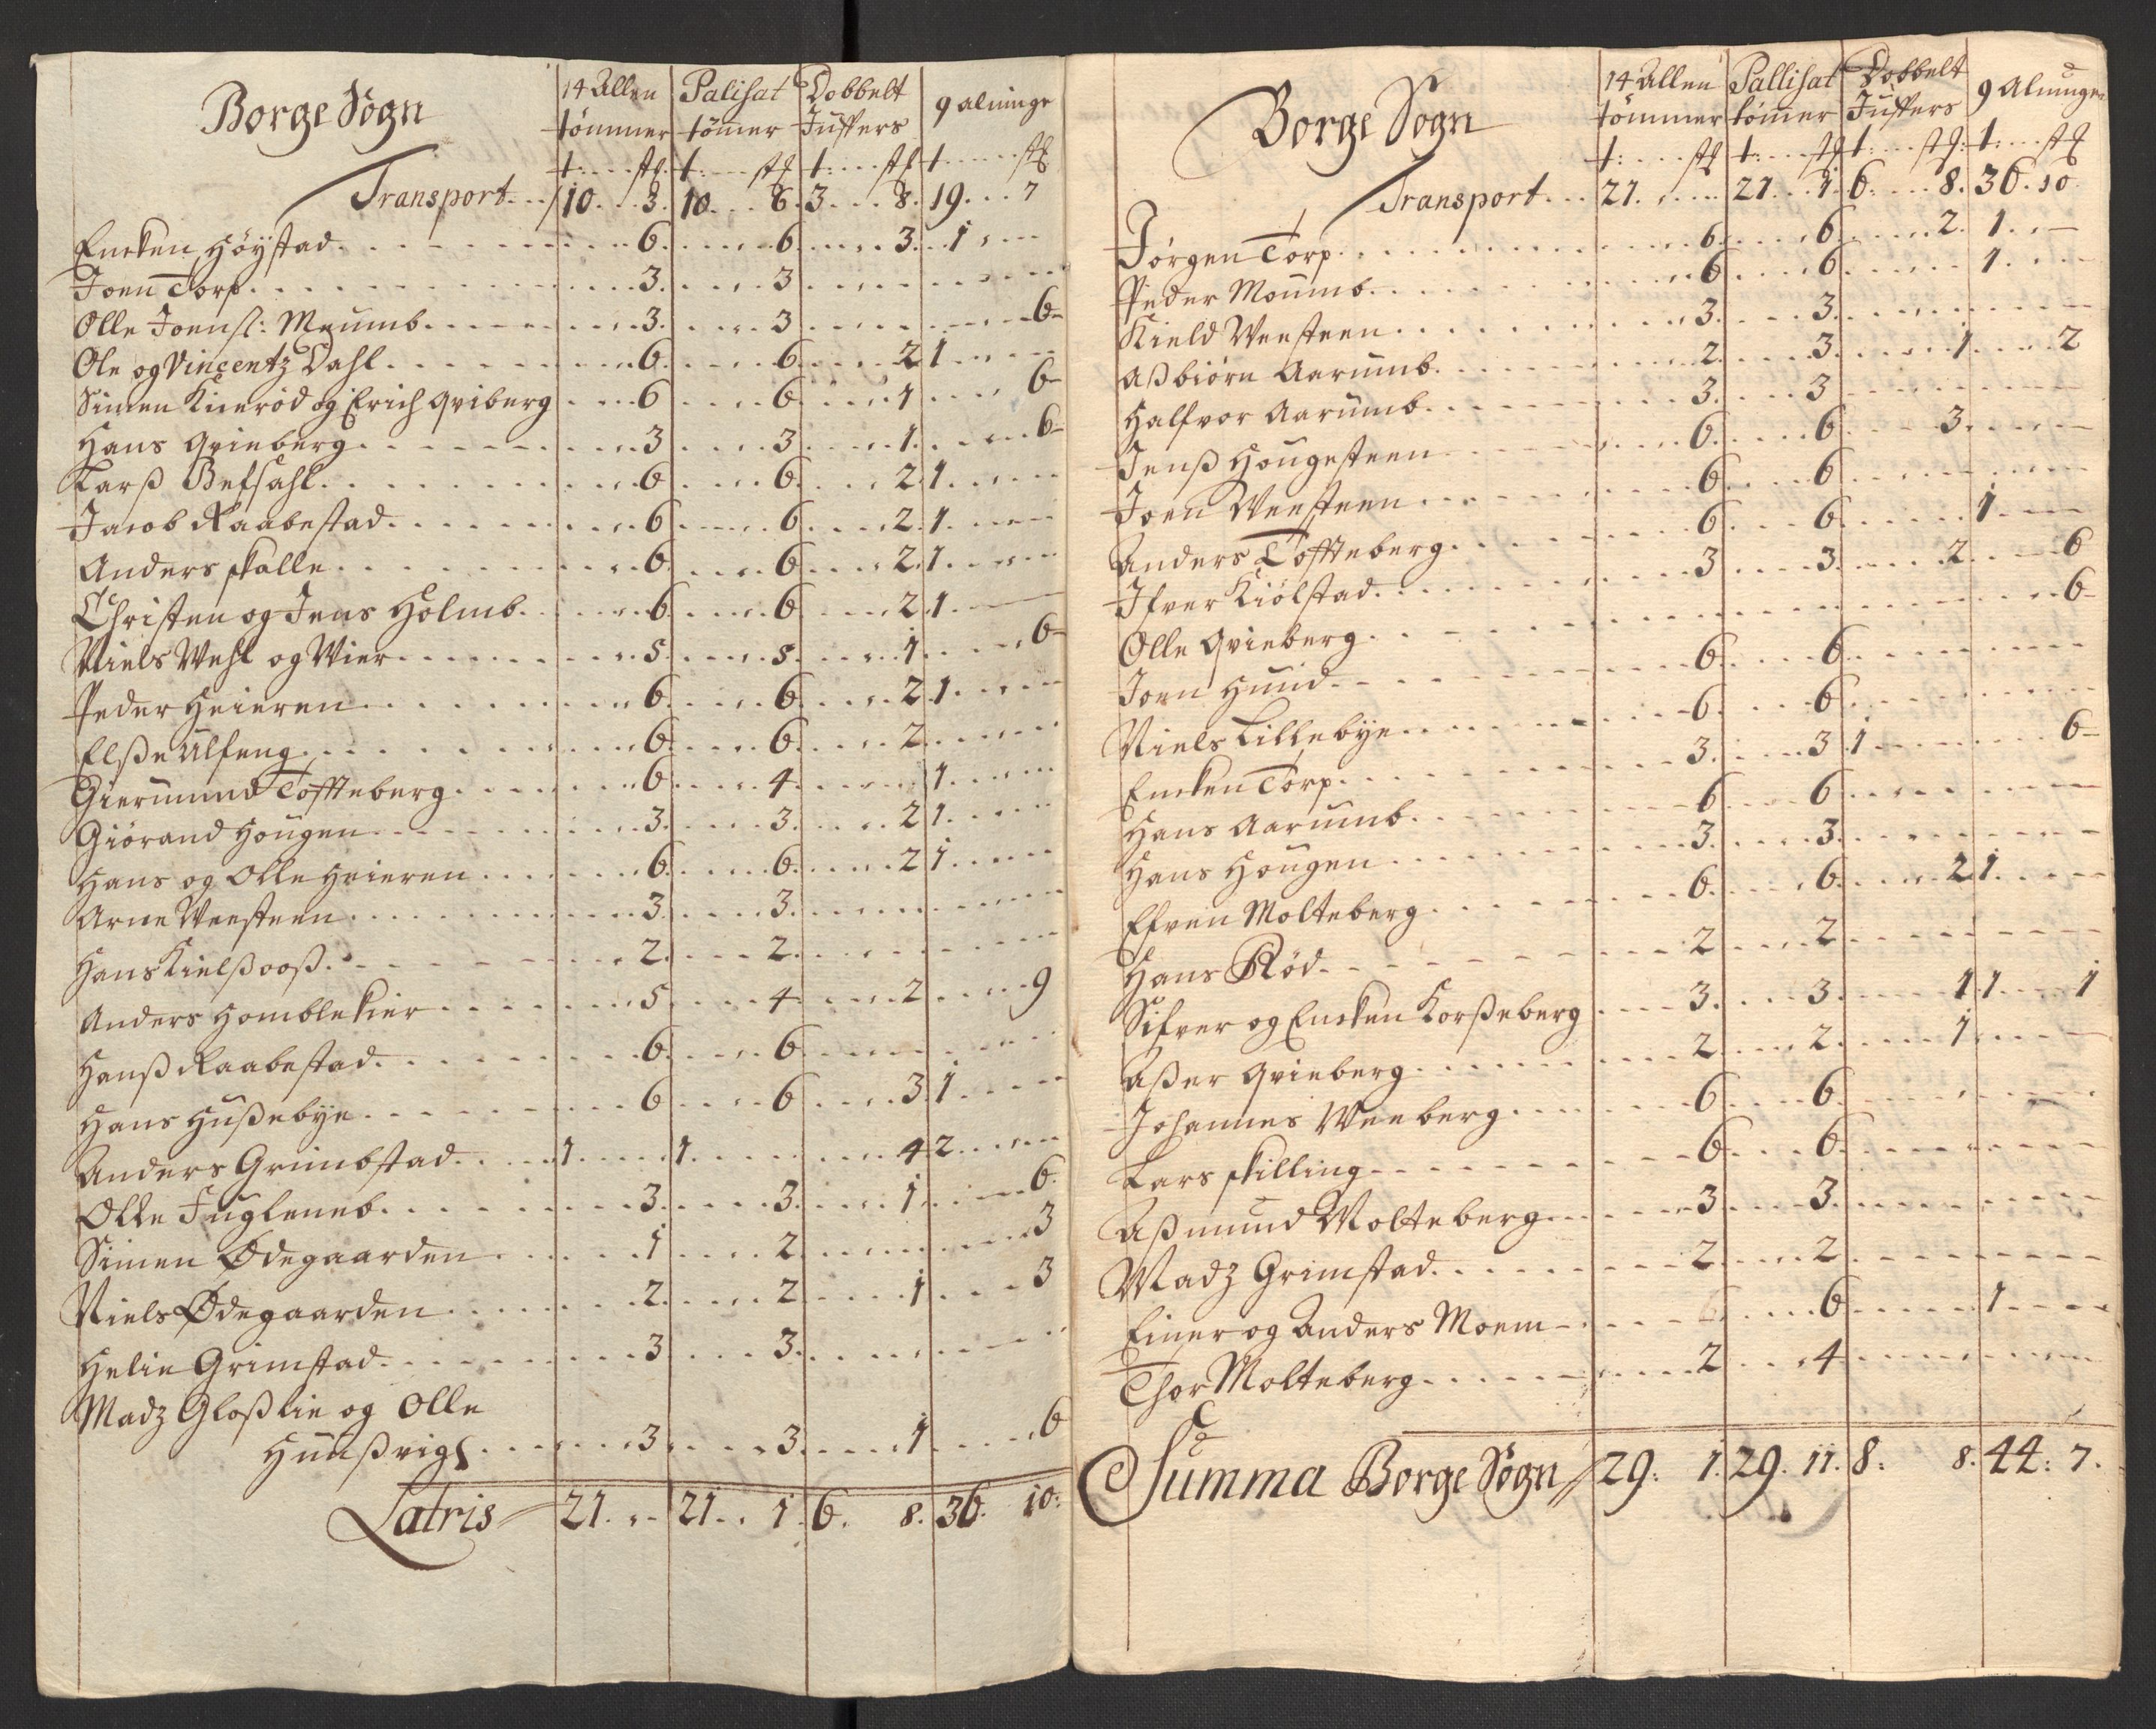 Borge Sogn
14 Allen Palisat Dobbelt 9 alninge
tömmer tömer Juffers
t: stk: t: stk t: stk t stk
Transport 10. 3. 10. 6. 3. 8. 19. 7
Encken Höystad 6. 6. 3. 1
Joen Torp 3. 3
Olle Joensl: Moumb 3. 3 6
Ole og Vincentz Dahl 6. 6. 2 1
Simen Kierød og Erich Qviberg 6 6. 1 6
Hans Qvieberg 3 3. 1. 6
Larß Befsahl 6. 6. 2. 1
Jacob Raabestad 6 6. 2. 1
Anders skalle 6. 6 2. 1
Christen og Jens Holmb 6. 6. 2. 1
Niels Wehl og Wier 5. 5. 1 6
Peder Heieren 6 6. 2. 1
Elße Ulfeng 6. 6. 2.
Giermund Toffteberg 6 4. 1.
Giörand Hougen 3. 3. 2 1.
Hans og Olle Heieren 6. 6. 2 1
Arne Weesteen 3. 3.
Hans Kielßooß 2. 2.
Anders Homblekier 5 4. 2 9
Hanß Raabestad 6. 6.
Hans Hußebye 6 6. 3. 1
Anders Grimbstad 1 1. 4 2
Olle Fugleneb 3. 3. 1 6.
Simen Ödegaarden 1 2. 3
Niels Ödegaarden 2. 2 1 3
Helie Grimstad 3 3.
Madz Gloßlie og Olle
Hunßvigs 3 3. 1 6
Latris 21. 21. 1. 6. 8. 36. 10:
Borge Sogn
14 Allen Pallisat Dobbelt 9 Alninge
tömmer tömmer Juffers
t: stk t: stk t: stk: t: stk
Transport 21. 21. 1. 6. 8. 36. 10
Jörgen Torp 6. 6 2. 1.
Peder Moumb 6 6 1.
Kield Weesteen 3. 3.
Aßbiörn Aarumb 2. 3. 1 2
Halfvor Aarumb 3. 3
Jenß Hougesteen 6. 6 3.
Joen Weesteen 6. 6
Anders Toffteberg 6. 6. 1
Ifver Kiölstad 3 3. 2 6
Olle Qvieberg 6
Joen Hund 6. 6
Niels Lillebye 6. 6
Encken Torp 3. 3. 1 6
Hans Aarumb 6 6
Hans Hougen 3. 3.
Efven Molteberg 6. 6. 2 1.
Hans Röd 2 2
Sifver og Encken Korßeberg 3. 3. 1 1 1
Aßer Qvieberg 2 2. 1
Johannes Weeberg 6 6.
Lars skilling 6. 6
Aßmund Molteberg 3 3.
Madz Grimstad 2 2
Einer og Anders Moem 6 6 1
Thor Molteberg 2 4
Summa Borge Sogn 29: 1. 29. 11. 8. 8. 44: 7.